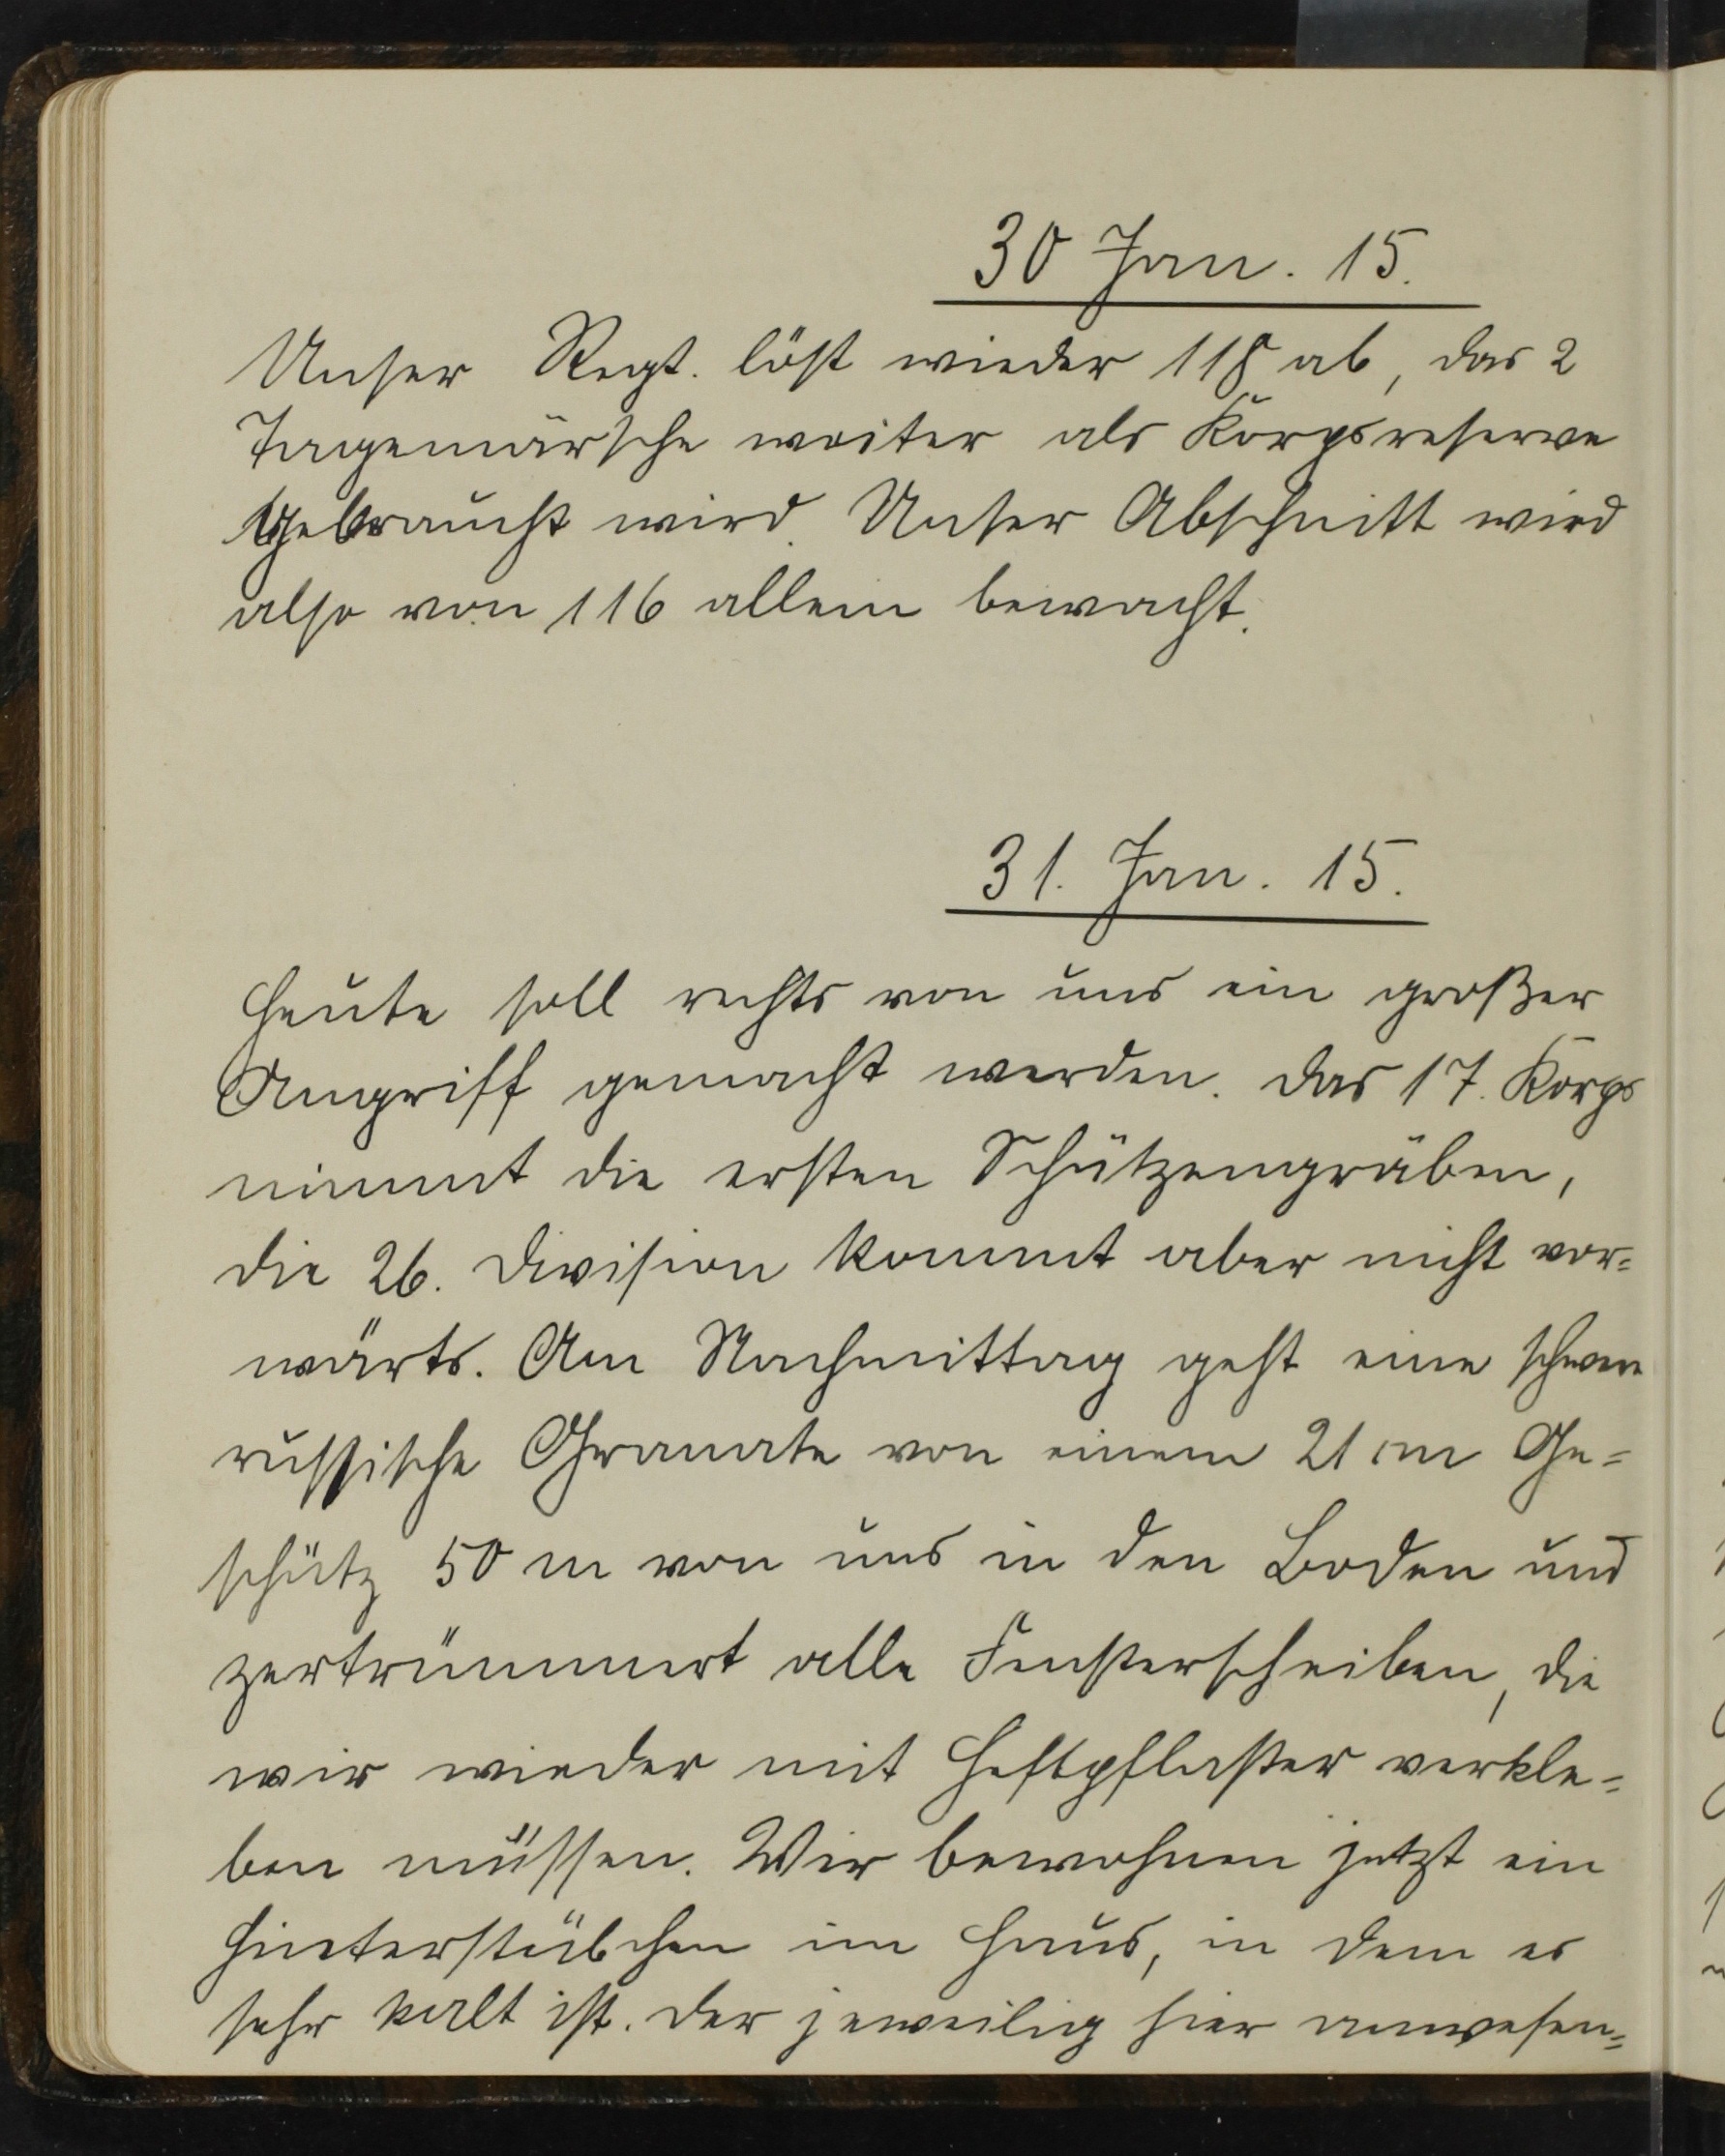 30 Jan. 15.
Unser Regt. löst wieder 118 ab, das 2
Tagemärsche weiter als Korpsreserve
gebraucht wird. Unser Abschnitt wird
also von 116 allein bewacht.
31. Jan. 15.
Heute soll rechts von uns ein großer
Angriff gemacht werden. Das 17. Korps
nimmt die ersten Schützengräben,
die 26. Division kommt aber nicht vor=
wärts. Am Nachmittag geht eine schwere
russische Granate von einem 21 cm Ge=
schütz 50 m von uns in den Boden und
zertrümmert alle Fensterscheiben, die
wir wieder mit Heftpflaster verkle=
ben müssen. Wir bewohnen jetzt ein
Hinterstübchen im Haus, in dem es
sehr kalt ist. Der jeweilig hier anwesen=